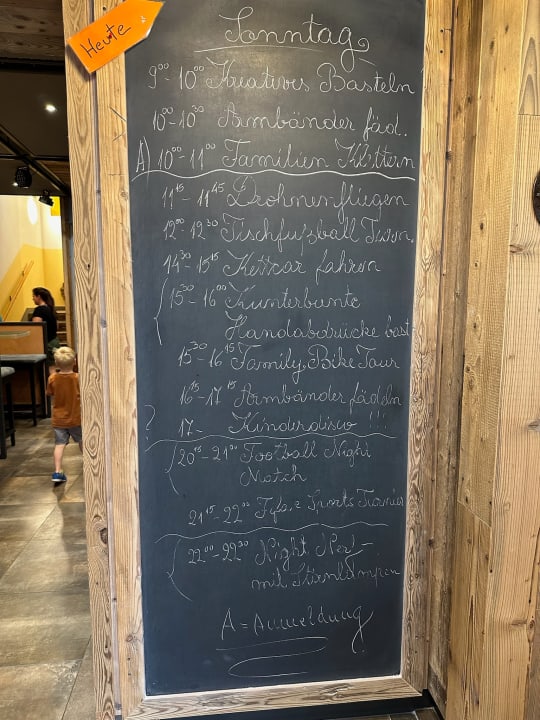 Heute
Sonntag
9⁰⁰-10⁰⁰ Kreatives Basteln
10⁰⁰-10³⁰ Armbänder fäd.
A) 10⁰⁰-11⁰⁰ Familien Klettern
11¹⁵-11⁴⁵ Drohnenfliegen
12⁰⁰-12³⁰ Tischfußball Turn.
14³⁰-15¹⁵ Kettcar fahren
15³⁰-16⁰⁰ Kunterbunte
Handabdrücke bast
15³⁰-16¹⁵ Family Bike Tour
16¹⁵-17¹⁵ Armbänder fädeln
? 17- Kinderdisco !!!
20¹⁵-21⁰⁰ Football Night
Match
21¹⁵-22⁰⁰ Sports Turnier
22⁰⁰-22³⁰ Night
mit Stirnlampen
A = Anmeldung